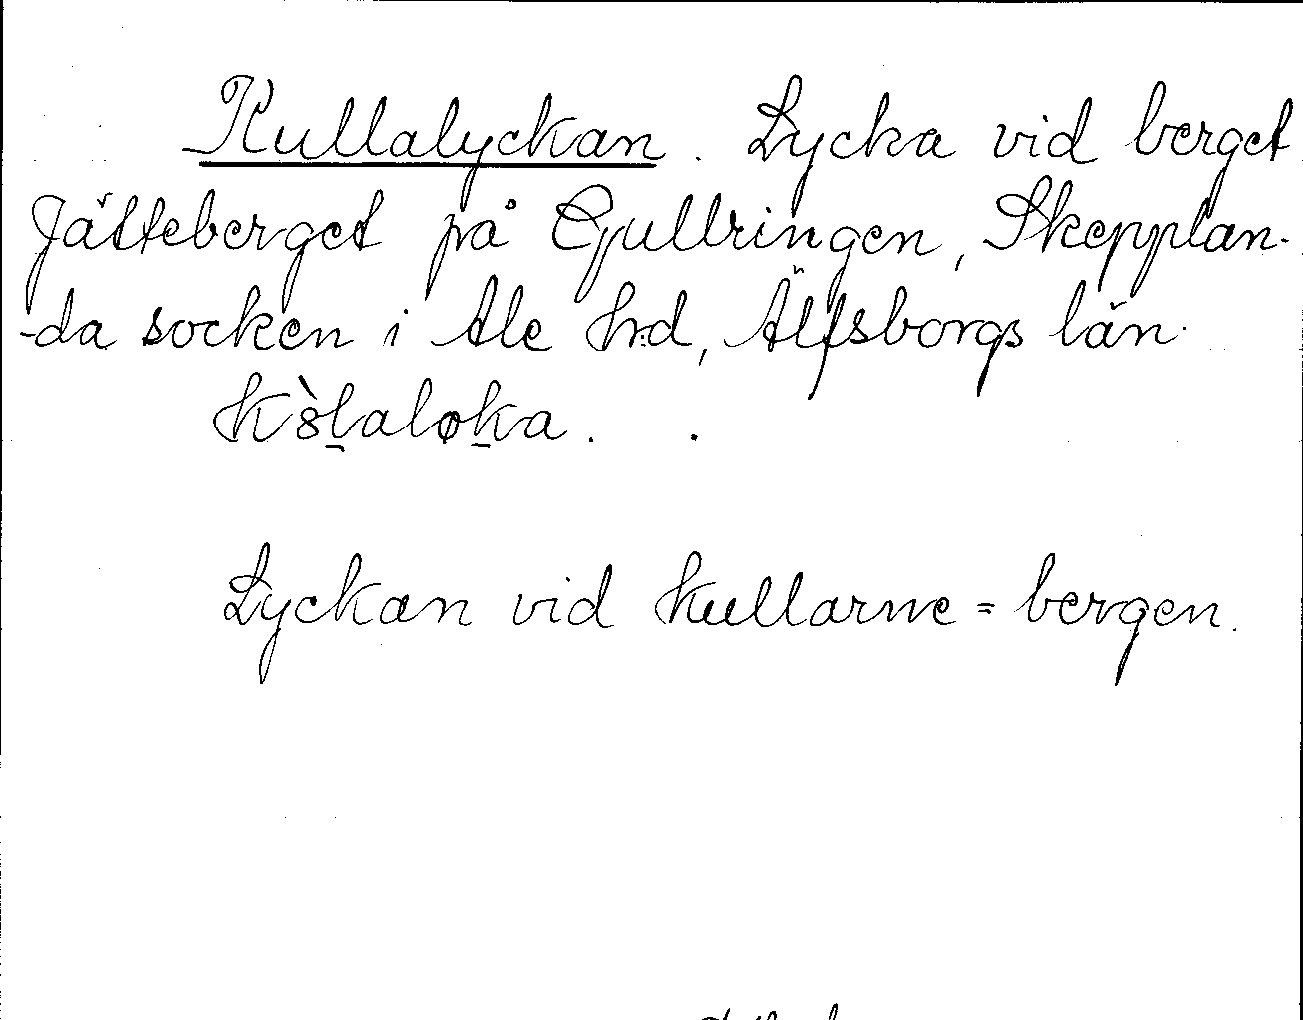 Kullalyckan. Lycka vid berget
Jätteberget på Gullringen, Skepplan-
-da socken i Ale hrd, Älfsborgs län.
Kòlaløka.
Lyckan vid kullarne = bergen.